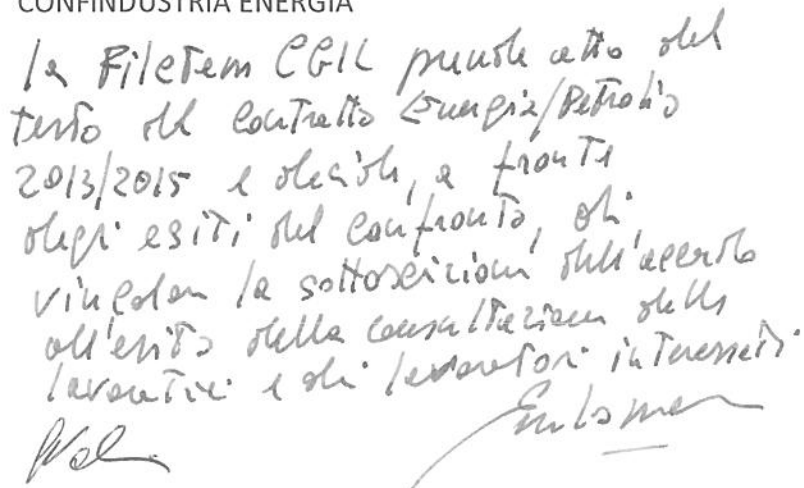 CONFINDUSTRIA ENERGIA
la Filctem CGIL prende atto del
testo del Contratto Energia/Petrolio
2013/2015 e decide, a fronte
degli esiti del confronto, di
vincolare la sottoscrizione dell'accordo
all'esito della consultazione delle
lavoratrici e dei lavoratori interessati